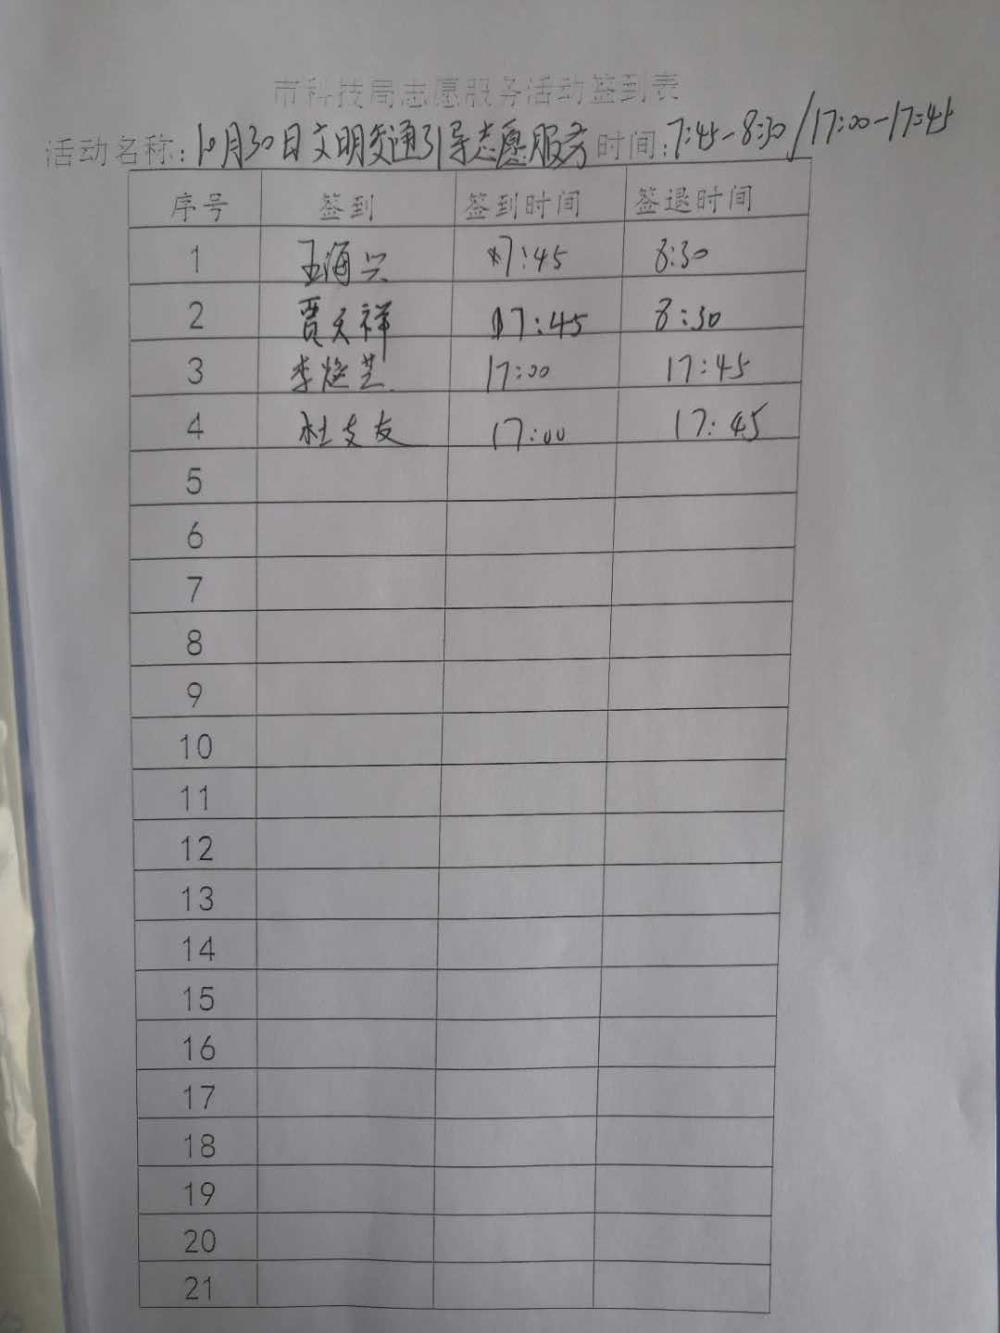 市科技局志愿服务活动签到表
活动名称:10月30日文明交通引导志愿服务 时间:7:45-8:30/17:00-17:45
序号 签到 签到时间 签退时间
1 王海兴 7:45 8:30
2 贾天祥 7:45 8:30
3 李 芝 17:00 17:45
4 杜支友 17:00 17:45
5
6
7
8
9
10
11
12
13
14
15
16
17
18
19
20
21